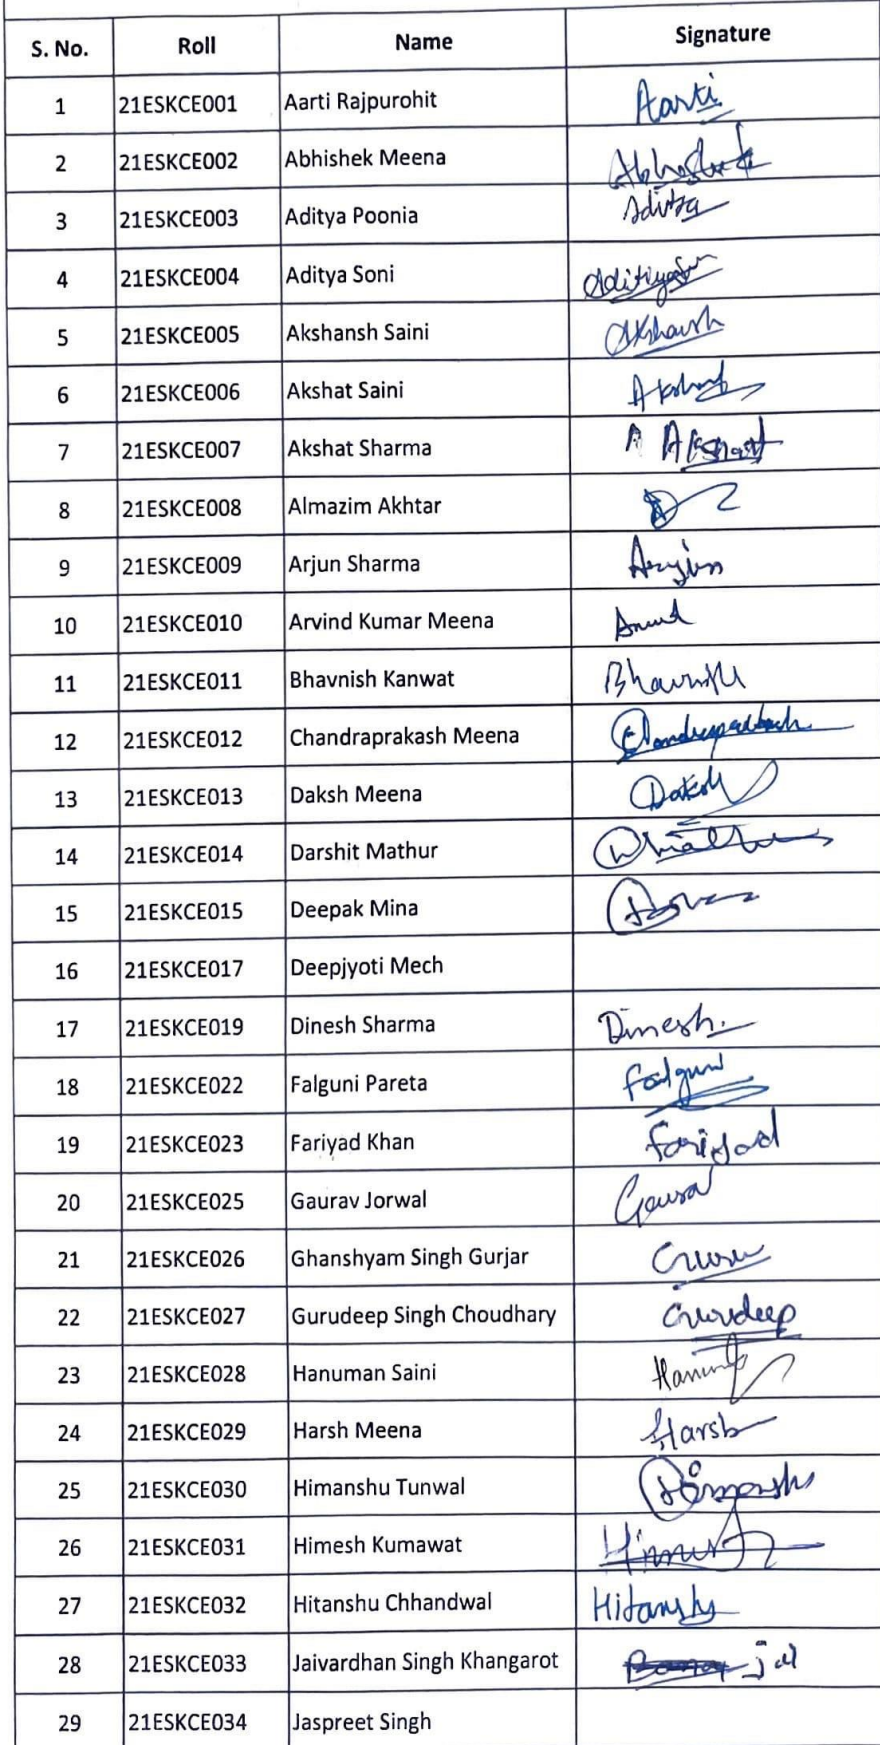 S. No. Roll Name Signature
1 21ESKCE001 Aarti Rajpurohit Aarti
2 21ESKCE002 Abhishek Meena Abhishek
3 21ESKCE003 Aditya Poonia Aditya
4 21ESKCE004 Aditya Soni
5 21ESKCE005 Akshansh Saini
6 21ESKCE006 Akshat Saini
7 21ESKCE007 Akshat Sharma A Akshat
8 21ESKCE008 Almazim Akhtar
9 21ESKCE009 Arjun Sharma Arjun
10 21ESKCE010 Arvind Kumar Meena
11 21ESKCE011 Bhavnish Kanwat
12 21ESKCE012 Chandraprakash Meena Chandraprakash
13 21ESKCE013 Daksh Meena Daksh
14 21ESKCE014 Darshit Mathur
15 21ESKCE015 Deepak Mina
16 21ESKCE017 Deepjyoti Mech
17 21ESKCE019 Dinesh Sharma Dinesh.
18 21ESKCE022 Falguni Pareta Falguni
19 21ESKCE023 Fariyad Khan Fariyad
20 21ESKCE025 Gaurav Jorwal
21 21ESKCE026 Ghanshyam Singh Gurjar
22 21ESKCE027 Gurudeep Singh Choudhary Gurudeep
23 21ESKCE028 Hanuman Saini
24 21ESKCE029 Harsh Meena Harsh
25 21ESKCE030 Himanshu Tunwal Himanshu
26 21ESKCE031 Himesh Kumawat
27 21ESKCE032 Hitanshu Chhandwal Hitanshu
28 21ESKCE033 Jaivardhan Singh Khangarot jai
29 21ESKCE034 Jaspreet Singh